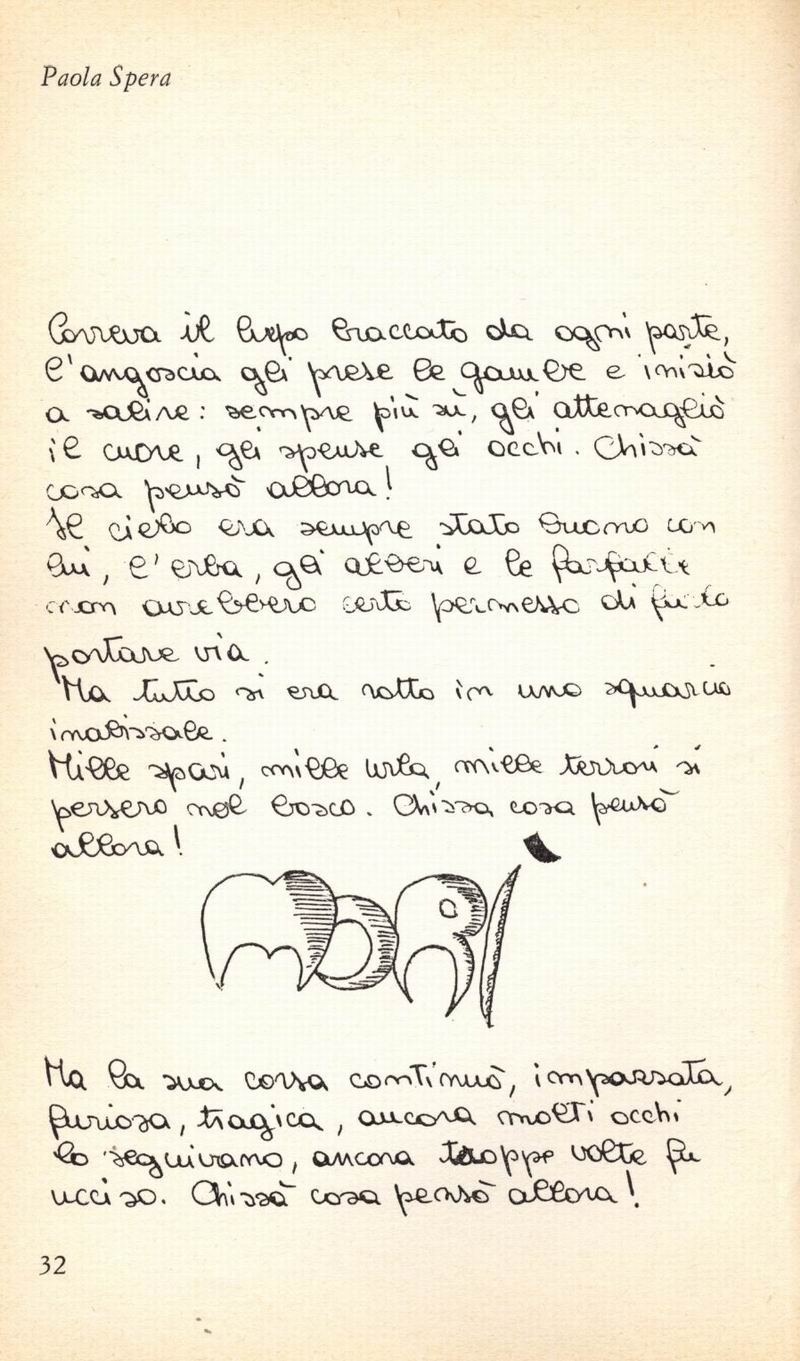 Paola Spera
Correva il lupo braccato da ogni parte,
l'angoscia gli prese le gambe e iniziò
a salire: sempre più sù, gli attenagliò
il cuore, gli spense gli occhi. Chissà
cosa pensò allora!
Il cielo era sempre stato buono con
lui, l'erba, gli alberi e le farfalle
non avrebbero certo permesso di farselo
portare via.
Ma tutto si era rotto in uno squarcio
inabissale.
Mille spari, mille urla, mille terrori si
persero nel bosco. Chissa cosa pensò
allora!
MORÌ
Ma la sua corsa continuò, impazzata,
furiosa, tragica, ancora molti occhi
lo seguivano, ancora troppe volte fu
ucciso. Chissà cosa pensò allora!
32